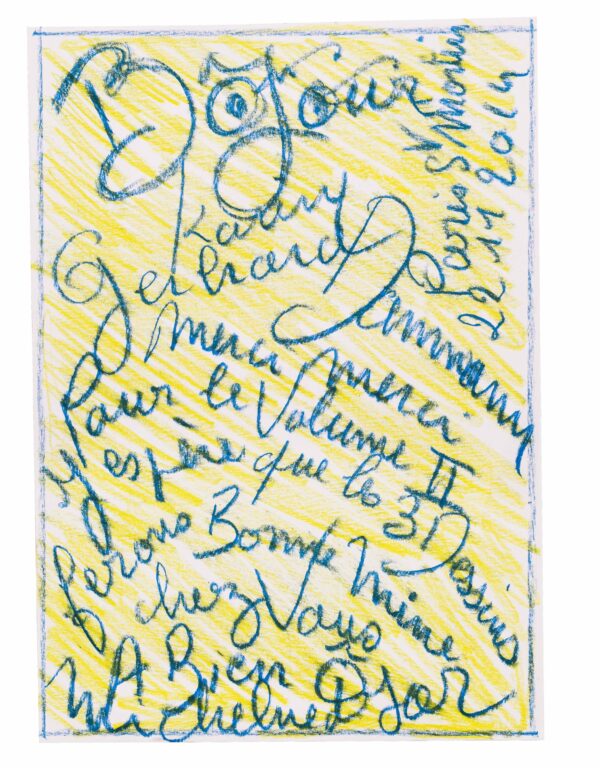 BoJour
Paris St Martin
22 11 2014
Karin
Gerhard Dammann
Merci Merci
Pour le Volume II
J espère que les 3 Dessins
ferons Bonne Mine
chez Vous
A Bien
Michel Nedjar